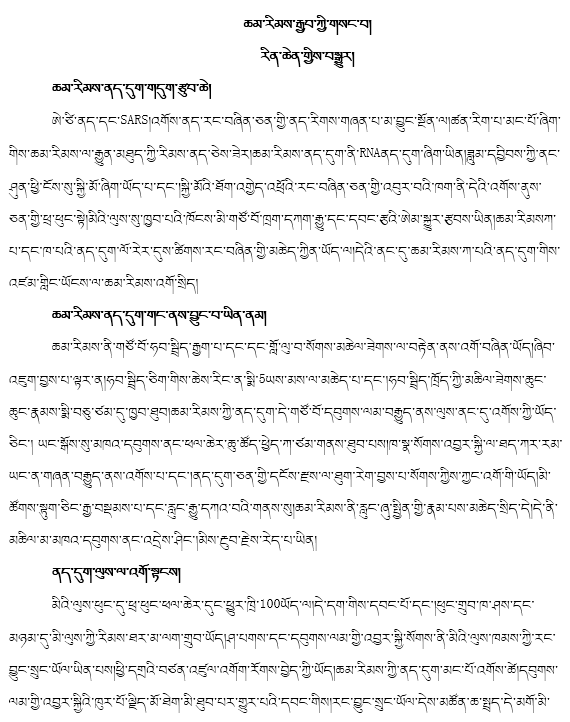 ཆམ་རིམས་རྒྱུབ་ཀྱི་གསང་བ།
རིན་ཆེན་གྱིས་བསྒྱུར།
ཆམ་རིམས་ནད་དུག་གདུག་རྩུབ་ཆེ།
ཨེ་ཙི་ནད་དང་SARSའགོས་ནད་རང་བཞིན་ཅན་གྱི་ནད་རིགས་གཞན་པ་མ་བྱུང་སྔོན་ལ།ཚན་རིག་པ་མང་པོ་ཞིག་
གིས་ཆམ་རིམས་ལ་རྒྱུན་མཐུད་ཀྱི་རིམས་ནད་ཅེས་ཟེར།ཆམ་རིམས་ནད་དུག་ནི་RNAནད་དུག་ཞིག་ཡིན།ཟླུམ་དབྱིབས་ཀྱི་ནང་
ཤུན་ཕྱི་ངོས་སུ་སྐྱི་མོ་ཞིག་ཡོད་པ་དང་།སྐྱི་མོའི་ཐོག་འགྱེད་འཕྲོའི་རང་བཞིན་ཅན་གྱི་འབུར་བའི་ཁག་ནི་དེའི་འགོས་ནུས་
ཅན་གྱི་ཕྲ་ཕུང་སྟེ།མིའི་ལུས་སུ་ཁྱབ་པའི་ཁོངས་མི་གཙོ་བོ་ཁྲག་དཀག་རྒྱུ་དང་དབང་རྩའི་ཨེམ་སྐྱུར་རྩབས་ཡིན།ཆམ་རིམསཀ་
པ་དང་ཁ་པའི་ནད་དུག་ལོ་རེར་དུས་ཚིགས་རང་བཞིན་གྱི་མཆེད་ཀྱིན་ཡོད་ལ།དེའི་ནང་དུ་ཆམ་རིམས་ཀ་པའི་ནད་དུག་གིས་
འཛམ་གླིང་ཡོངས་ལ་ཆམ་རིམས་འགོ་སྲིད།
ཆམ་རིམས་ནད་དུག་གང་ནས་བྱུང་བ་ཡིན་ནམ།
ཆམ་རིམས་ནི་གཙོ་བོ་ཧབ་སྦྲིད་རྒྱག་པ་དང་དང་གློ་ལུ་བ་སོགས་མཆིལ་ཟེགས་ལ་བརྟེན་ནས་འགོ་བཞིན་ཡོད།ཞིབ་
འཇུག་བྱས་པ་ལྟར་ན།ཧབ་སྦྲིད་ཅིག་གིས་ཆེས་རིང་ན་སྨི་5ཡས་མས་ལ་མཆེད་པ་དང་།ཧབ་སྦྲིད་ཁྲོད་ཀྱི་མཆིལ་ཟེགས་ཆུང་
ཆུང་རྣམས་སྨི་བཅུ་ཙམ་དུ་ཁྱབ་ཐུབ།ཆམ་རིམས་ཀྱི་ནད་དུག་དེ་གཙོ་བོ་དབུགས་ལམ་བརྒྱུད་ནས་ལུས་ནང་དུ་འགོས་ཀྱི་ཡོད་
ཅིང་། ཡང་སྒོས་སུ་མཁའ་དབུགས་ནང་ཕལ་ཆེར་ཆུ་ཚོད་ཕྱེད་ཀ་ཙམ་གནས་ཐུབ་པས།ཁ་སྣ་སོགས་འབྱར་སྐྱི་ལ་ཐད་ཀར་རམ་
ཡང་ན་གཞན་བརྒྱུད་ནས་འགོས་པ་དང་།ནད་དུག་ཅན་གྱི་དངོས་རྫས་ལ་ཐུག་རེག་བྱས་པ་སོགས་ཀྱིས་ཀྱང་འགོ་གི་ཡོད།མི་
ཚོགས་སྟུག་ཅིང་རྒྱ་བསྡམས་པ་དང་རླུང་རྒྱུ་དཀའ་བའི་གནས་སུ།ཆམ་རིམས་ནི་རླུང་ཞུ་སྤྲིན་གྱི་རྣམ་པས་མཆེད་སྲིད་དེ།དེ་ནི་
མཆིལ་མ་མཁའ་དབུགས་ནང་འདྲེས་ཤིང་།མིས་རྔུབ་རྗེས་རེད་པ་ཡིན།
ནད་དུག་ལུས་ལ་འགོ་སྟངས།
མིའི་ལུས་ཕུང་དུ་ཕྲ་ཕུང་ཕལ་ཆེར་དུང་ཕྱུར་ཁྲི་100ཡོད་ལ།དེ་དག་གིས་དབང་པོ་དང་།ཕུང་གྲུབ་ཁ་ཤས་དང་
མཉམ་དུ་མི་ལུས་ཀྱི་རིམས་ཐར་མ་ལག་གྲུབ་ཡོད།ཤ་པགས་དང་དབུགས་ལམ་གྱི་འབྱར་སྐྱི་སོགས་ནི་མིའི་ལུས་ཁམས་ཀྱི་རང་
བྱུང་སྲུང་ཡོལ་ཡིན་པས།ཕྱི་དགྲའི་བཙན་འཛུལ་འགོག་རོགས་བྱེད་ཀྱི་ཡོད།ཆམ་རིམས་ཀྱི་ནད་དུག་མང་པོ་འགོས་ཚེ།དབུགས་
ལམ་གྱི་འབྱར་སྐྱིའི་ཁུར་པོ་ལྗིད་མོ་ཐེག་མི་ཐུབ་པར་གྱུར་པའི་དབང་གིས།རང་བྱུང་སྲུང་ཡོལ་དེས་མཚོན་ཆ་སྤྲད་དེ་མགོ་མི་